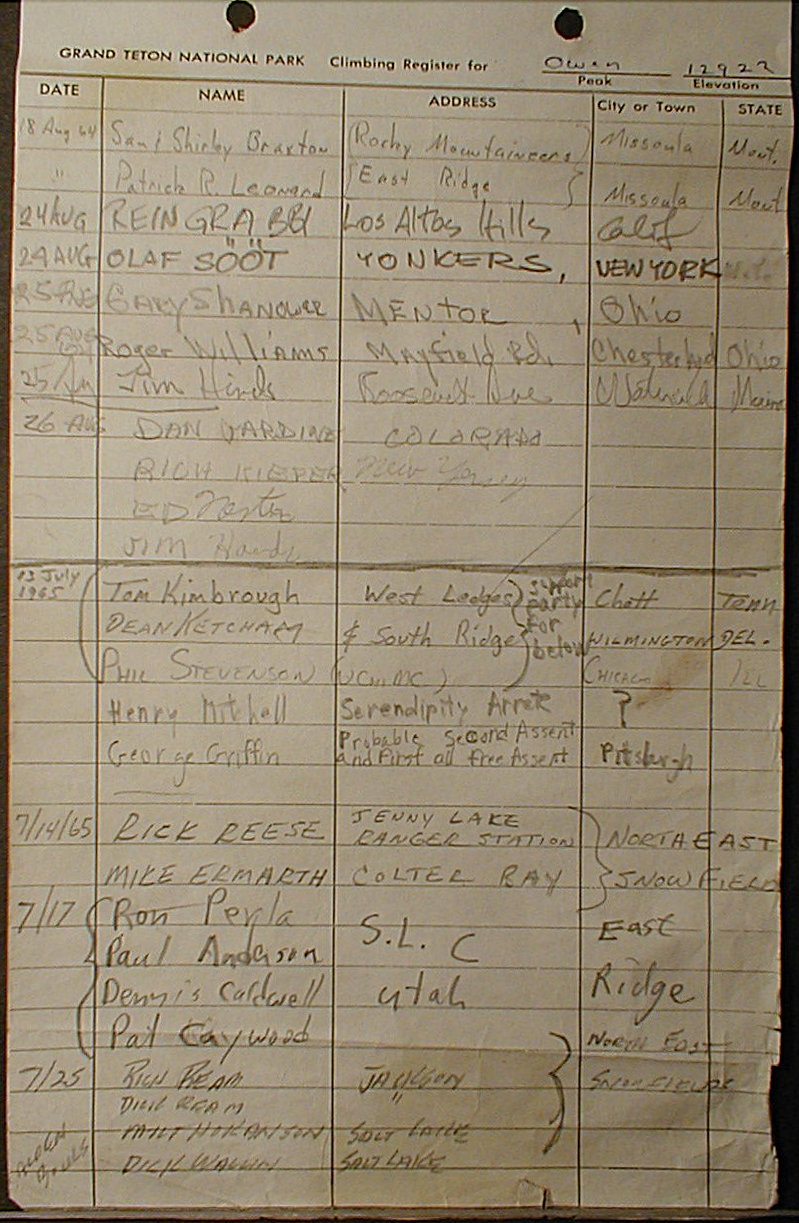 GRAND TETON NATIONAL PARK Climbing Register for Owen 12922
Peak Elevation
DATE NAME ADDRESS City or Town STATE
18 Aug 64 Sam & Shirley Braxton (Rocky Mountaineers) Missoula Mont.
" Patrick R. Leonard East Ridge Missoula Mont
24 AUG REIN GRABBI Los Altos Hills Calif
24 AUG OLAF SÖÖT YONKERS, NEW YORK N.Y.
25 AUG GARY SHANOWER MENTOR, Ohio
25 AUG Roger Williams Mayfield Rd. Ohio
Jim Hinds Roosevelt Ave Maine
26 AUG DAN COLORADO
RICH KIEFER New Jersey
ED
JIM
13 July 1965 Tom Kimbrough West Ledges support party for below Chatt Tenn
DEAN KETCHAM & South Ridge WILMINGTON DEL.
PHIL STEVENSON (UCHIMC) CHICAGO ILL
Henry Mitchell Serendipity Arrete ?
George Griffin Probable Second Assent and First all free Assent Pittsburgh
7/14/65 RICK REESE JENNY LAKE RANGER STATION NORTHEAST
MIKE ERMARTH COLTER BAY SNOWFIELD
7/17 Ron Perla S.L.C East
Paul Anderson
Dennis Caldwell Utah Ridge
Pat Caywood NORTH EAST
7/25 RICH REAM JACKSON SNOWFIELDS
DICK REAM "
MILT HOKANSON SALT LAKE
DICK WALLIN SALT LAKE